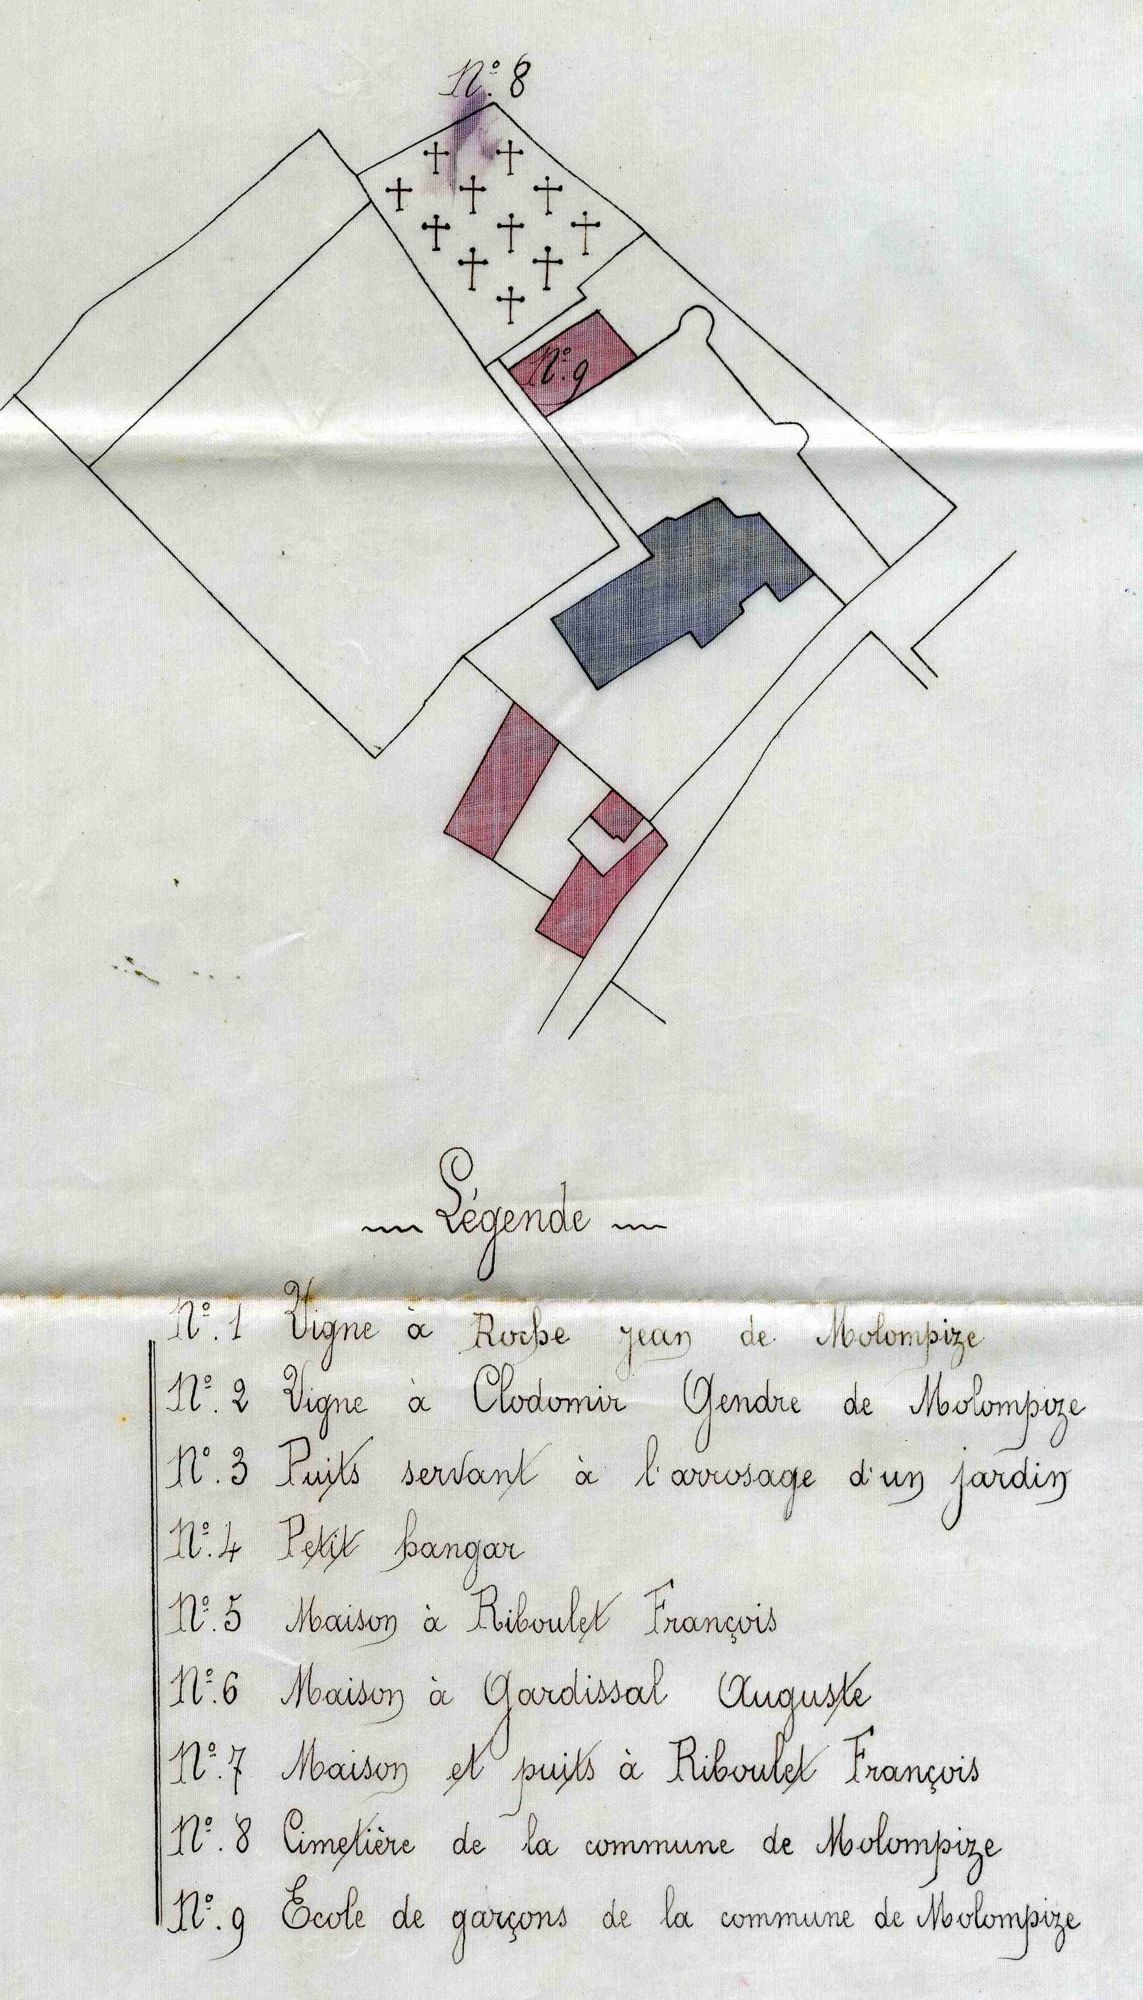 Nº. 8
Nº. 9
Légende
Nº. 1 Vigne à Roche Jean de Molompize
Nº. 2 Vigne à Clodomir Gendre de Molompize
Nº. 3 Puits servant à l'arrosage d'un jardin
Nº. 4 Petit hangar
Nº. 5 Maison à Riboulet François
Nº. 6 Maison à Gardissal Auguste
Nº. 7 Maison et puits à Riboulet François
Nº. 8 Cimetière de la commune de Molompize
Nº. 9 Ecole de garçons de la commune de Molompize